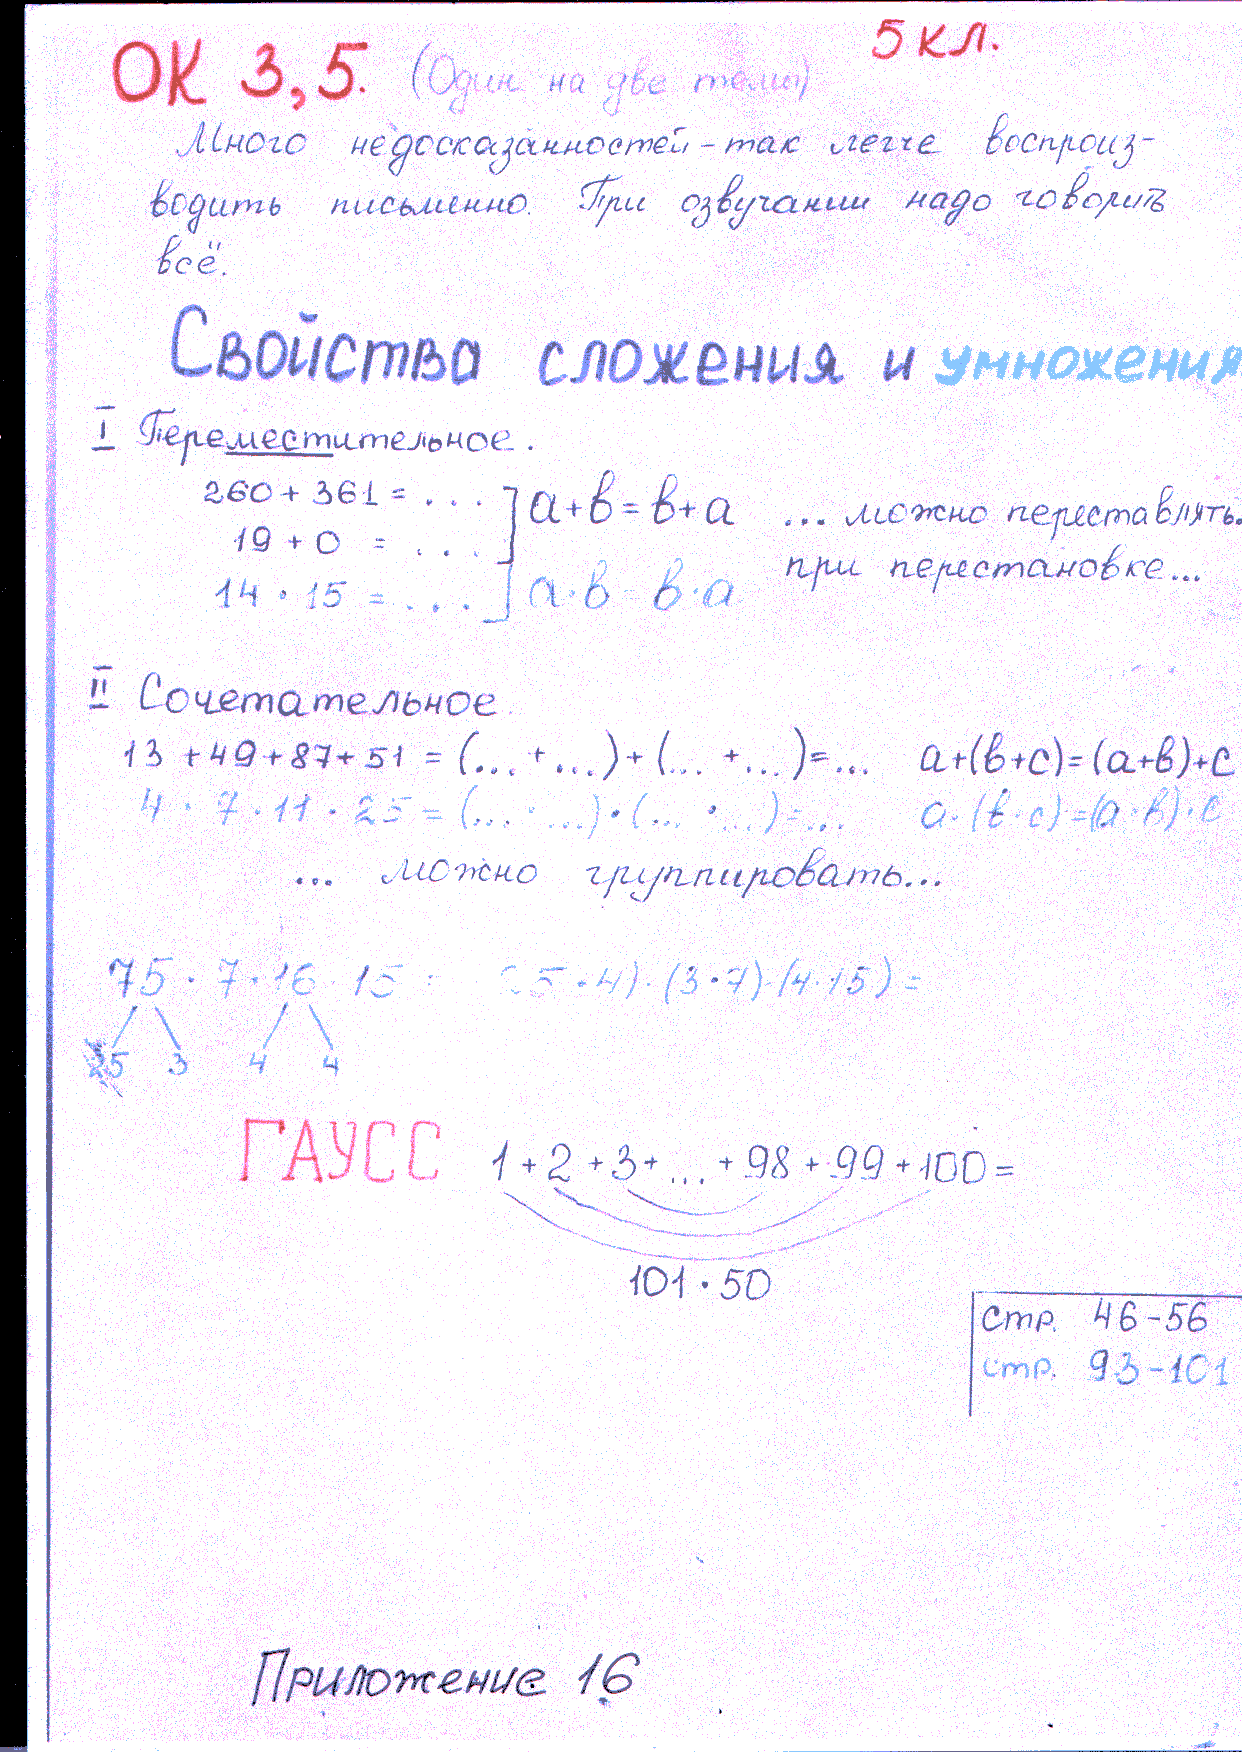 5 кл.
ОК 3,5. (Один на две темы)
Много недосказанностей - так легче воспроиз-
водить письменно. При озвучании надо говорить
всё.
Свойства сложения и умножения
I Переместительное.
260 + 361 = . . .
19 + 0 = . . .
a+b=b+a
... можно переставлять.
при перестановке...
14 · 15 = . . .
a·b b·a
II Сочетательное.
13 +49+87+51 = (... + ...) + (... + ...)=... a+(b+c)=(a+b)+c
4 · 7 · 11 · 25 = (... · ...) · (... · ...)=... a·(b·c)=(a·b)·c
... можно группировать...
75 · 7 · 16 · 15 = 5 · 4) · (3 · 7) · (4 · 15) =
25 3 4 4
ГАУСС 1 + 2 + 3 + ... + 98 + 99 + 100 =
101 · 50
Стр. 46-56
Стр. 93-101
Приложение 16